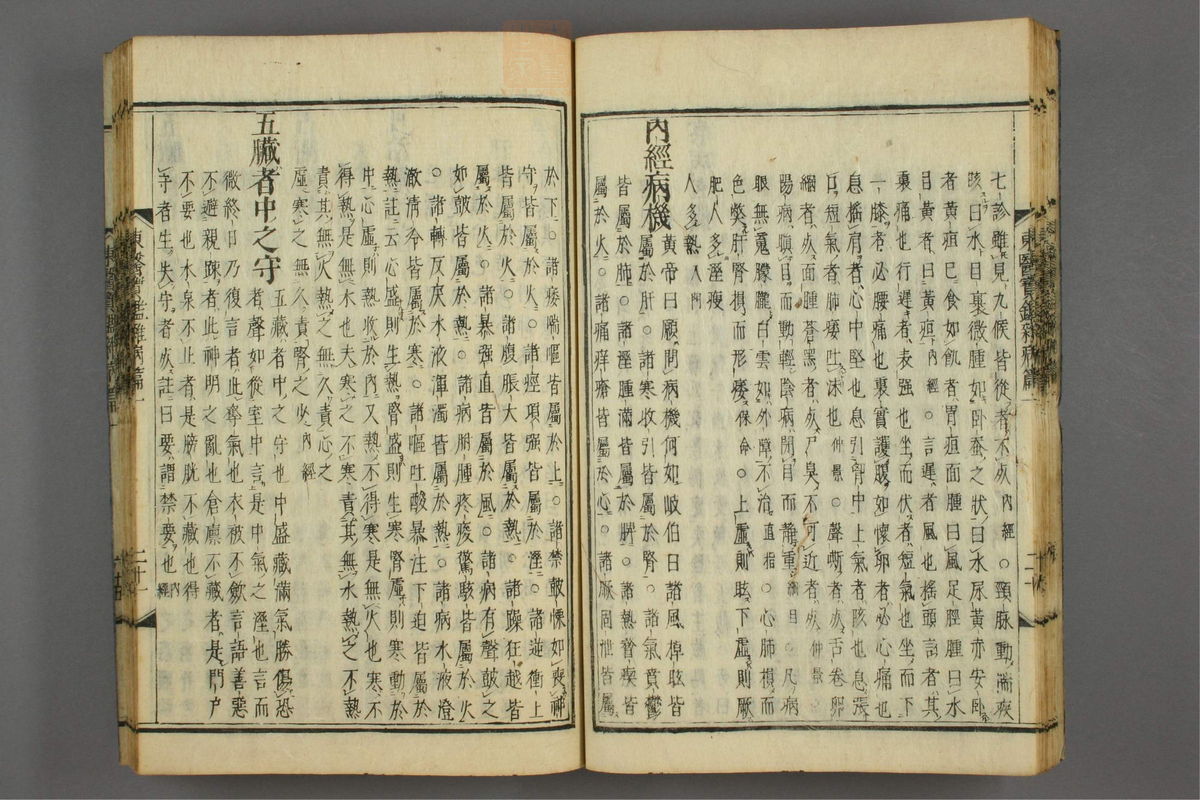 七診雖見九候皆從者不死內經○頸脉動喘疾
咳曰水目裹微腫如臥蚕之狀曰水尿黃赤安臥
者黃疸已食如飢者胃疸面腫曰風足脛腫曰水
目黃者曰黃疸內經○言遲者風也搖頭言者其
裏痛也行遲者表强也坐而伏者短氣也坐而下
一膝者必腰痛也裏實護腹如懷卵者必心痛也
息搖肩者心中堅也息引胷中上氣者咳也息張
口短氣者肺痿吐沫也仲景○聲嘶者死舌卷卵
縮者死面腫蒼黑者死尸臭不可近者死仲景○
陽病頭目而動輕陰病閉目而靜重綱目○凡病
眼無䰟朦朧白雲如外障不治直指○心肺損而
色弊肝腎損而形痿保命○上虛則眩下虛則厥
肥人多濕瘦
人多熱入門
內經病機
黃帝曰願聞病機何如岐伯曰諸風掉眩皆
屬於肝○諸寒收引皆屬於腎○諸氣賁鬱
皆屬於肺○諸濕腫滿皆屬於脾○諸熱瞀瘈皆
屬於火○諸痛痒瘡皆屬於心○諸厥固泄皆屬
於下○諸痿喘嘔皆屬於上○諸禁鼓慄如喪神
守皆屬於火○諸痙項强皆屬於濕○諸逆衝上
皆屬於火○諸腹脹大皆屬於熱○諸躁狂越皆
屬於火○諸暴强直皆屬於風○諸病有聲鼓之
如鼓皆屬於熱○諸病胕腫疼痠驚駭皆屬於火
○諸轉反戾水液渾濁皆屬於熱○諸病水液澄
澈清冷皆屬於寒○諸嘔吐酸暴注下迫皆屬於
熱註云心盛則生熱腎盛則生寒腎虛則寒動於
中心虛則熱收於內又熱不得寒是無火也寒不
得熱是無水也夫寒之不寒責其無水熱之不熱
責其無火熱之無久責心之
虛寒之無久責腎之少內經
五臟者中之守
五藏者中之守也中盛藏滿氣勝傷恐
者聲如從室中言是中氣之濕也言而
微終日乃復言者此奪氣也衣被不歛言語善惡
不避親踈者此神明之亂也倉廩不藏者是門戶
不要也水泉不止者是膀胱不藏也得
守者生失守者死註曰要謂禁要也內經